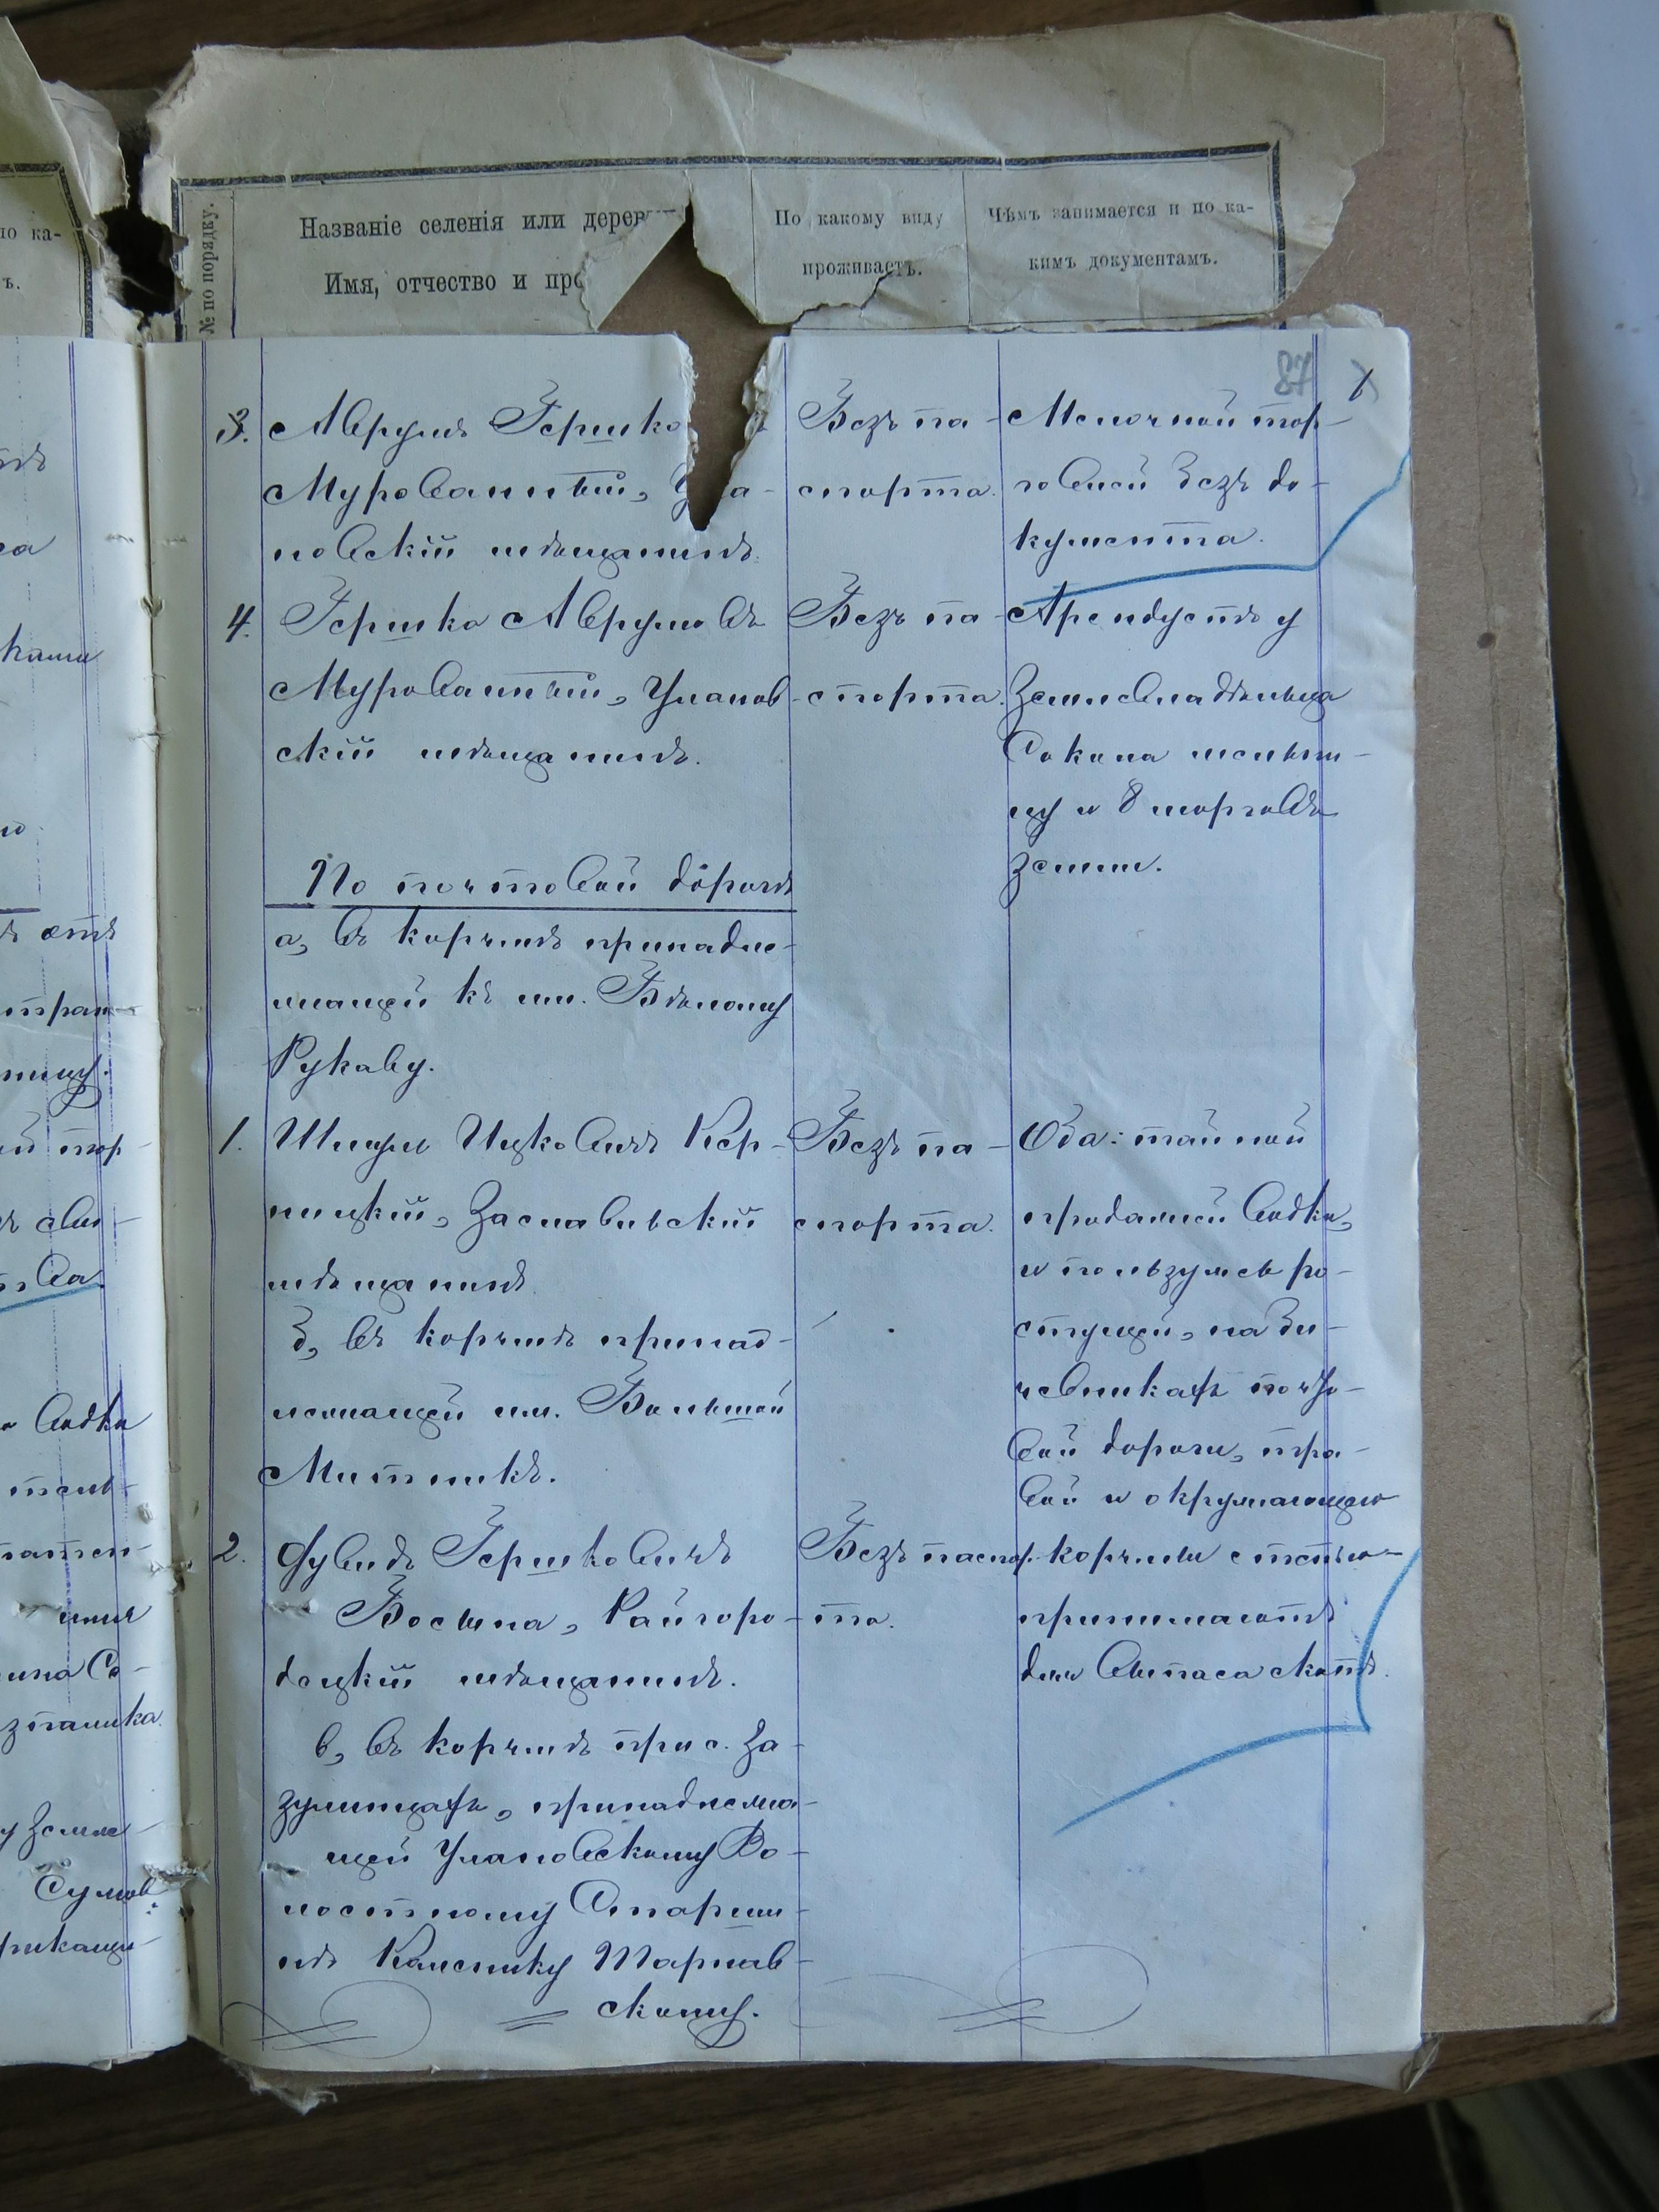 № по порядку.
Названіе селенія или дерев
Имя, отчество и про
По какому виду
проживаетъ.
Чѣмъ занимается и по ка-
кимъ документамъ.
87
3. Аврумъ Гершко
Мурованный, У а-
новскій мѣщанинъ.
Безъ па-
спорта.
Мелочной тор-
говлей безъ до-
кумента.
4. Гершко Аврумовъ
Мурованный, Уланов-
скій мѣщанинъ.
Безъ па-
спорта.
Арендуетъ у
Землевладѣльца
Сокола мельни-
цу и 8 морговъ
земли.
По почтовой дорогѣ
а, въ корчмѣ принадле-
жащей къ им. Бѣлому
Рукаву.
1. Шмуль Ицковичъ Кер-
ницкій, Заславльскій
мѣщанинъ
Безъ па-
спорта.
Оба: тайной
продажей водки,
и пользуясь ро-
стущей, на би-
чевникахъ почто-
вой дороги, тра-
вой и окружающею
корчмы степью
принимаютъ
для выпаса скотъ.
б, въ корчмѣ принад-
лежащей им. Большой
Митникъ.
2. Дувидъ Гершковичъ
Босина, Райгоро-
доцкій мѣщанинъ.
Безъ паспор-
та.
в, въ корчмѣ при с. За-
зулинцахъ, принадлежа-
щей Улановскому Во-
лостному Старши-
нѣ Калснику Тарнав-
скому.
по ка-
ъ.
етъ
ницу.
ой тор-
водки
ина Со-
зтаника.
у Земле-